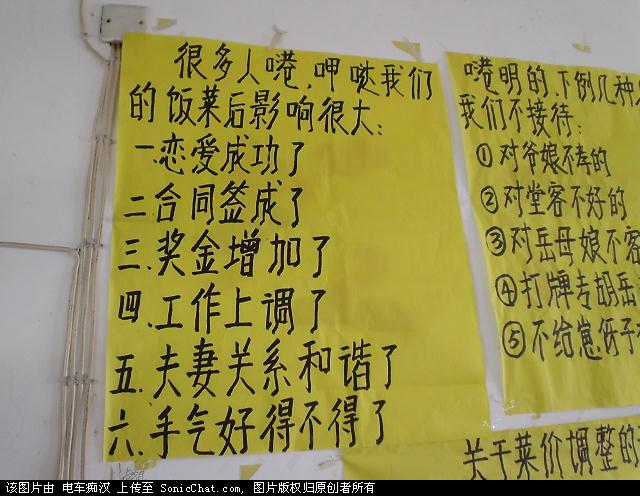 很多人嗯,呷哒我们
的饭菜后影响很大:
一.恋爱成功了
二.合同签成了
三.奖金增加了
四.工作上调了
五.夫妻关系和谐了
六.手气好得不得了
明的.下例几种
我们不接待:
①对爷娘不孝的
②对堂客不好的
③对岳母娘不客
④打牌专胡岳
⑤不给崽伢子
关于菜价调整的
该图片由 电车痴汉 上传至 SonicChat.com, 图片版权归原创者所有